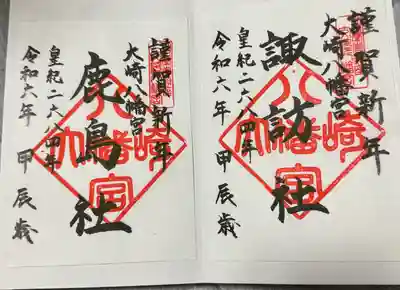 謹賀新年
大崎八幡宮
諏訪社
皇紀二六八四年
令和六年 甲辰歳
大崎八幡宮
謹賀新年
大崎八幡宮
鹿島社
皇紀二六八四年
令和六年 甲辰歳
大崎八幡宮